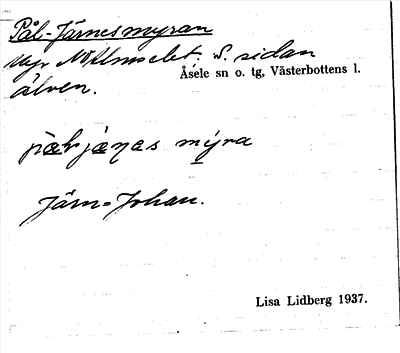 Pål-Järnesmyran
Myr N Älmselet. S. sidan
Åsele sn o. tg, Västerbottens l.
älven.
mýra
Järn-Johan.
Lisa Lidberg 1937.